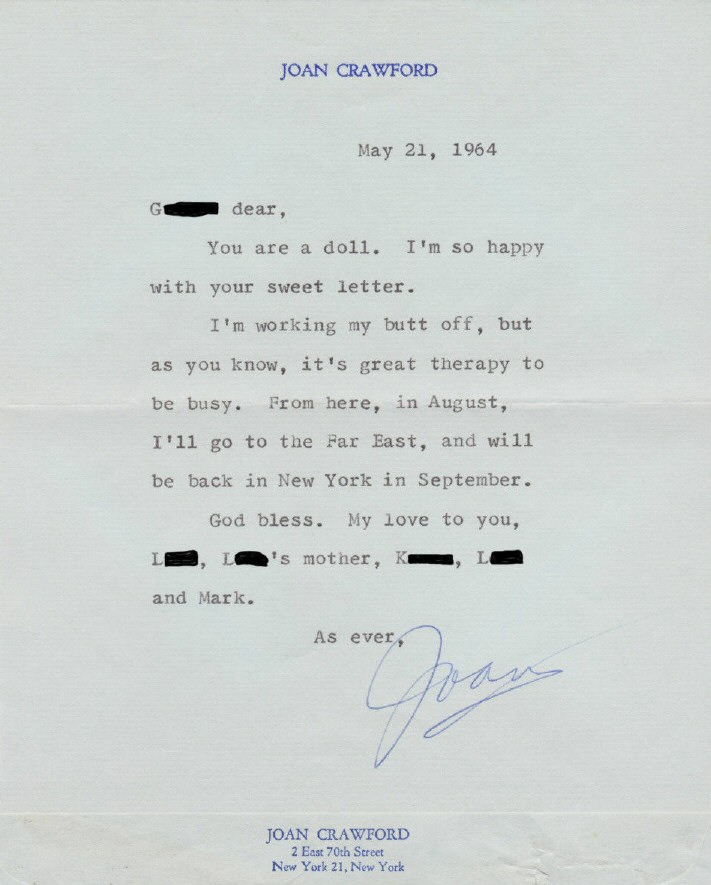 JOAN CRAWFORD
May 21, 1964
G dear,
You are a doll. I'm so happy
with your sweet letter.
I'm working my butt off, but
as you know, it's great therapy to
be busy. From here, in August,
I'll go to the Far East, and will
be back in New York in September.
God bless. My love to you,
L, L's mother, K, L
and Mark.
As ever,
Joan
JOAN CRAWFORD
2 East 70th Street
New York 21, New York